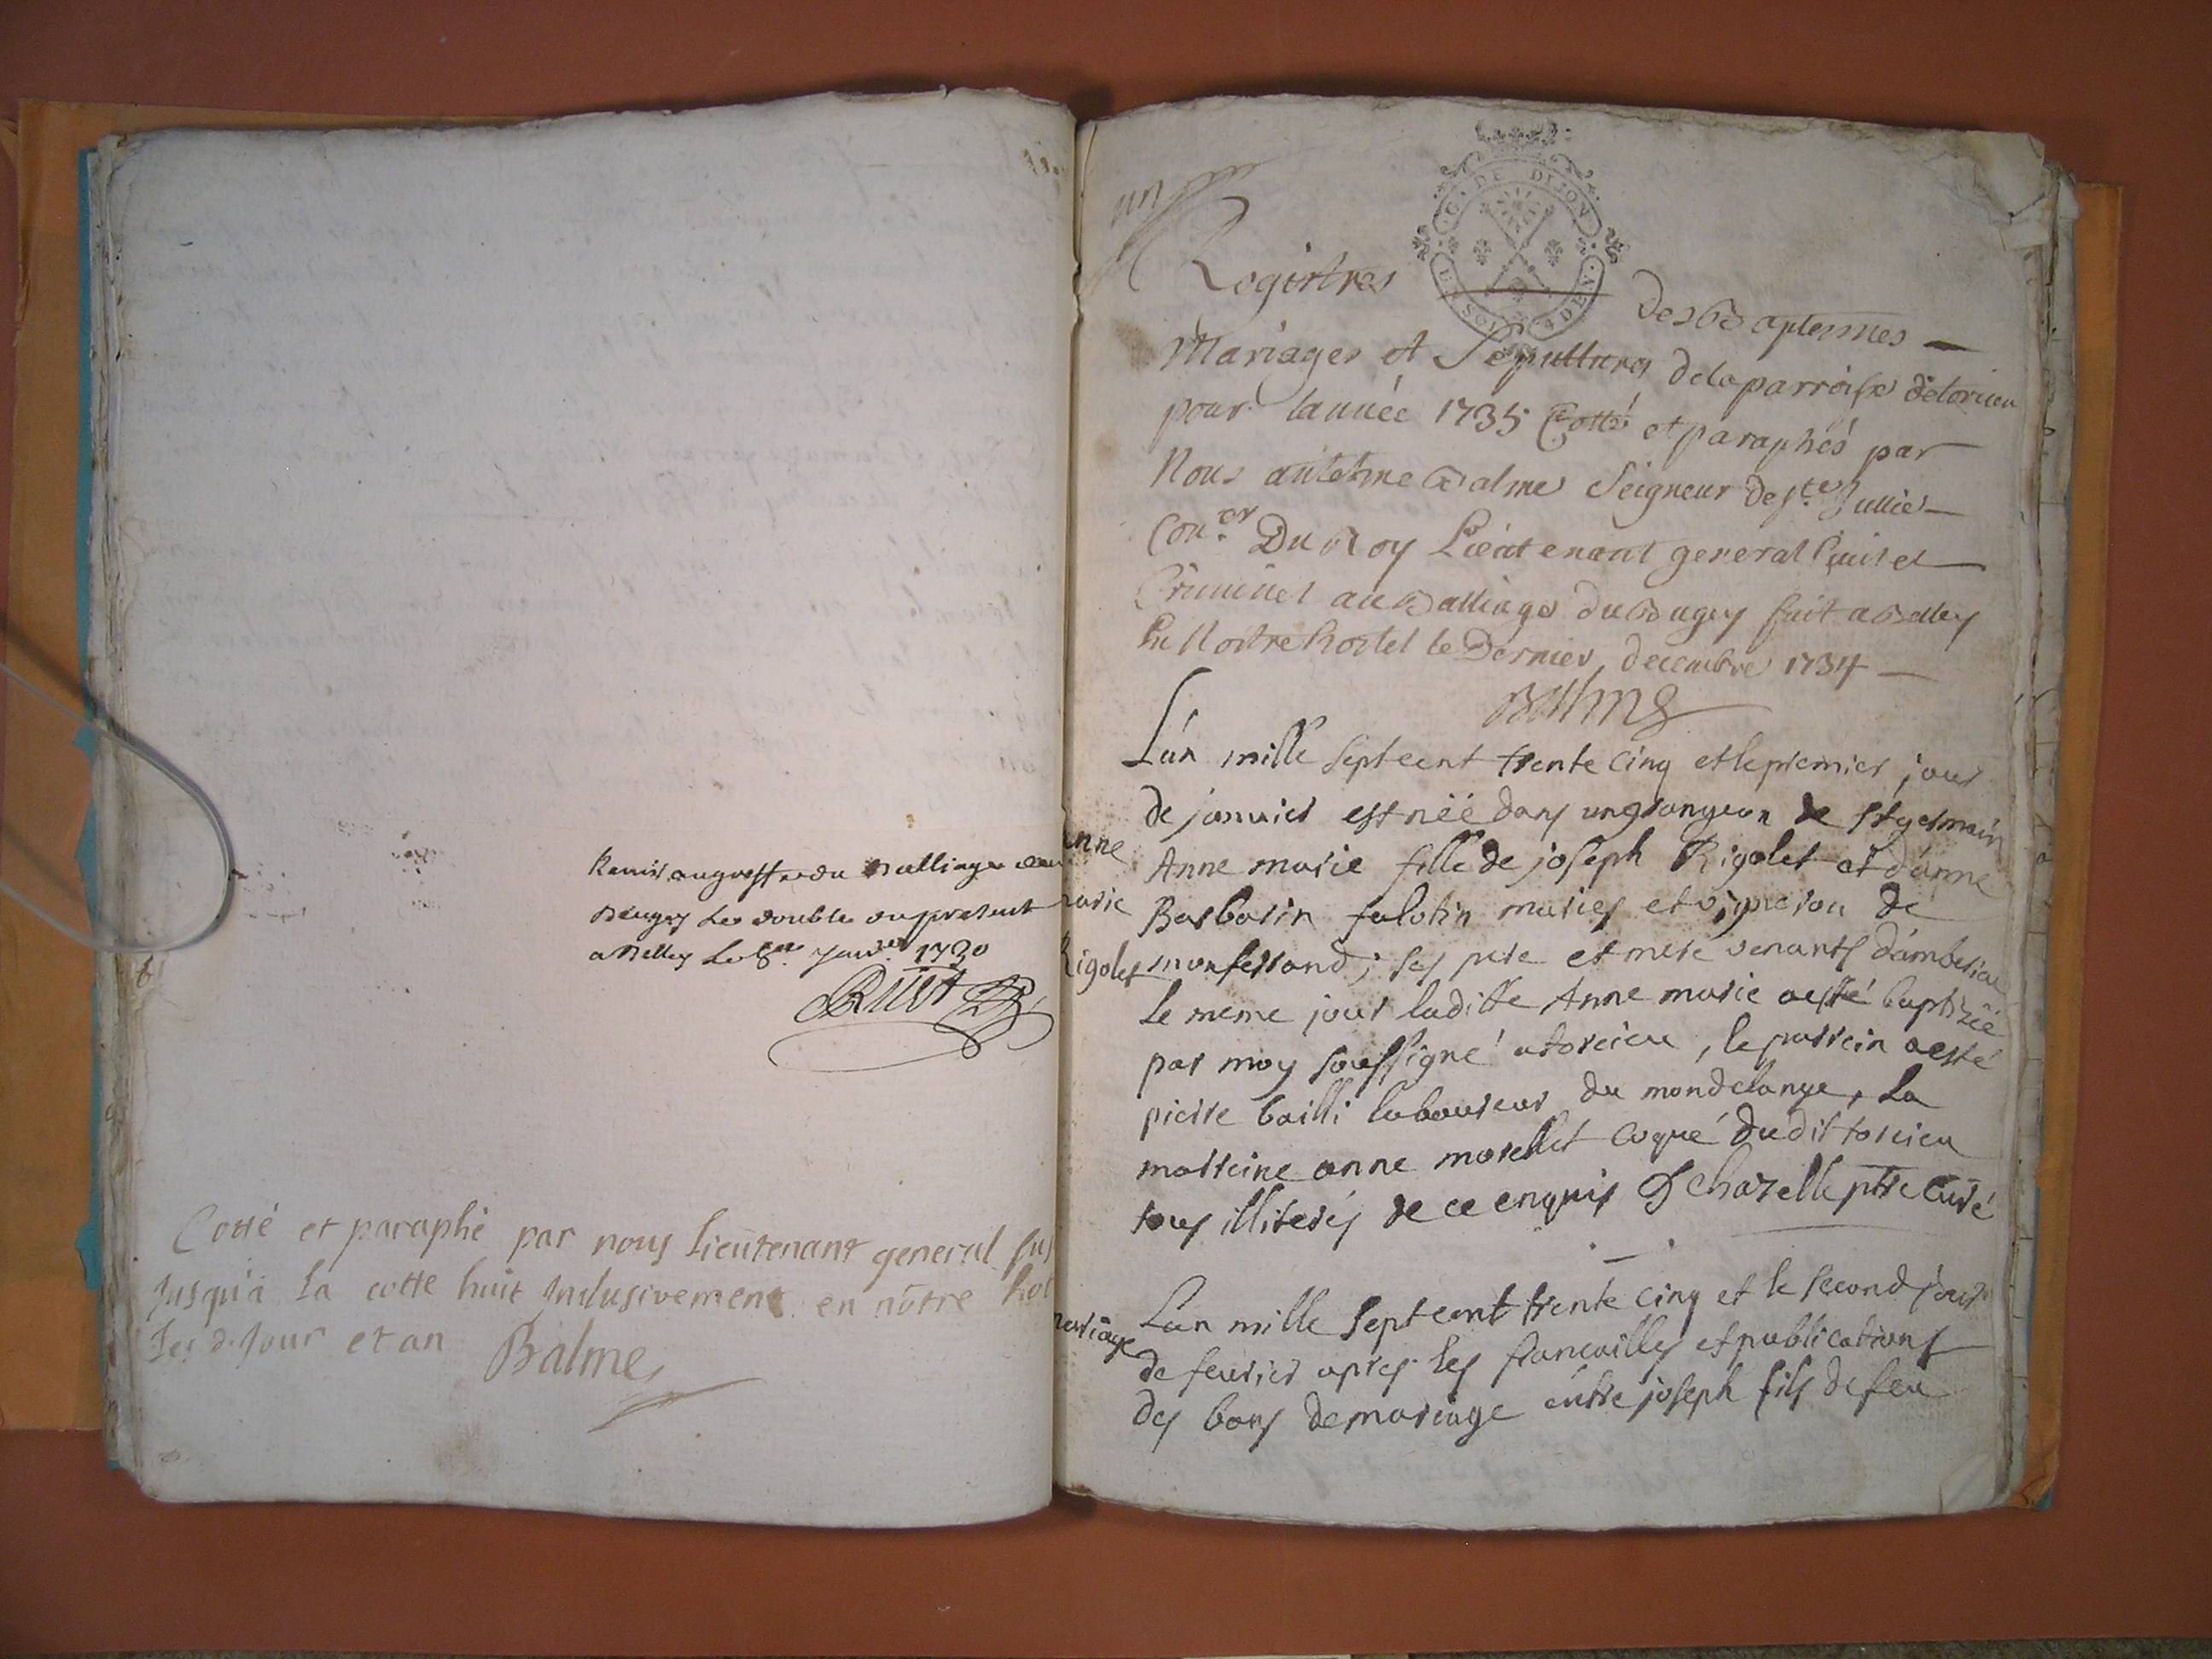 Remis au greffe du Balliage de
Beugey le double du present
a Belley le 8me Janv.er 1730
Cotté et paraphé par nous lieutenant general sus
jusqu'a la cotte huit inclusivement en nôtre hot
les d. jour et an
Balme
un
G. DE DIJON
Registres des Baptesmes
Mariages et Sepultures de la parroisse de torcieu
pour lannée 1735 Cotté et paraphés par
Nous antoine Balme Seigneur de Ste Jullie
Con.er Du Roy Lieutenant general Civil et
Criminel au Balliage du Bugey fait a Belley
En Nostre hostel le Dernier decembre 1734
Balme
L'an mille sept cent trente cinq et le premier jour
de janvier est néé dans un grangeon de st germain
Anne marie fille de joseph Rigolet et d'anne
Barbarin falotin mariés et vigneron de
monferrand; ses pere et mere venants d'amberieu
le meme jour laditte Anne marie a esté baptizéé
par moy soussigné a torcieu, le parrein a esté
pierre bailli laboureur du mondelange, la
marreine anne morellet cogné dudit torcieu
tous illiterés de ce enquis D chazelle ptre curé
anne
marie
Rigolet
L'an mille sept cent trente cinq et le second jour
de fevrier apres les fiancailles et publications
des bans de mariage entre joseph fils de feu
mariage